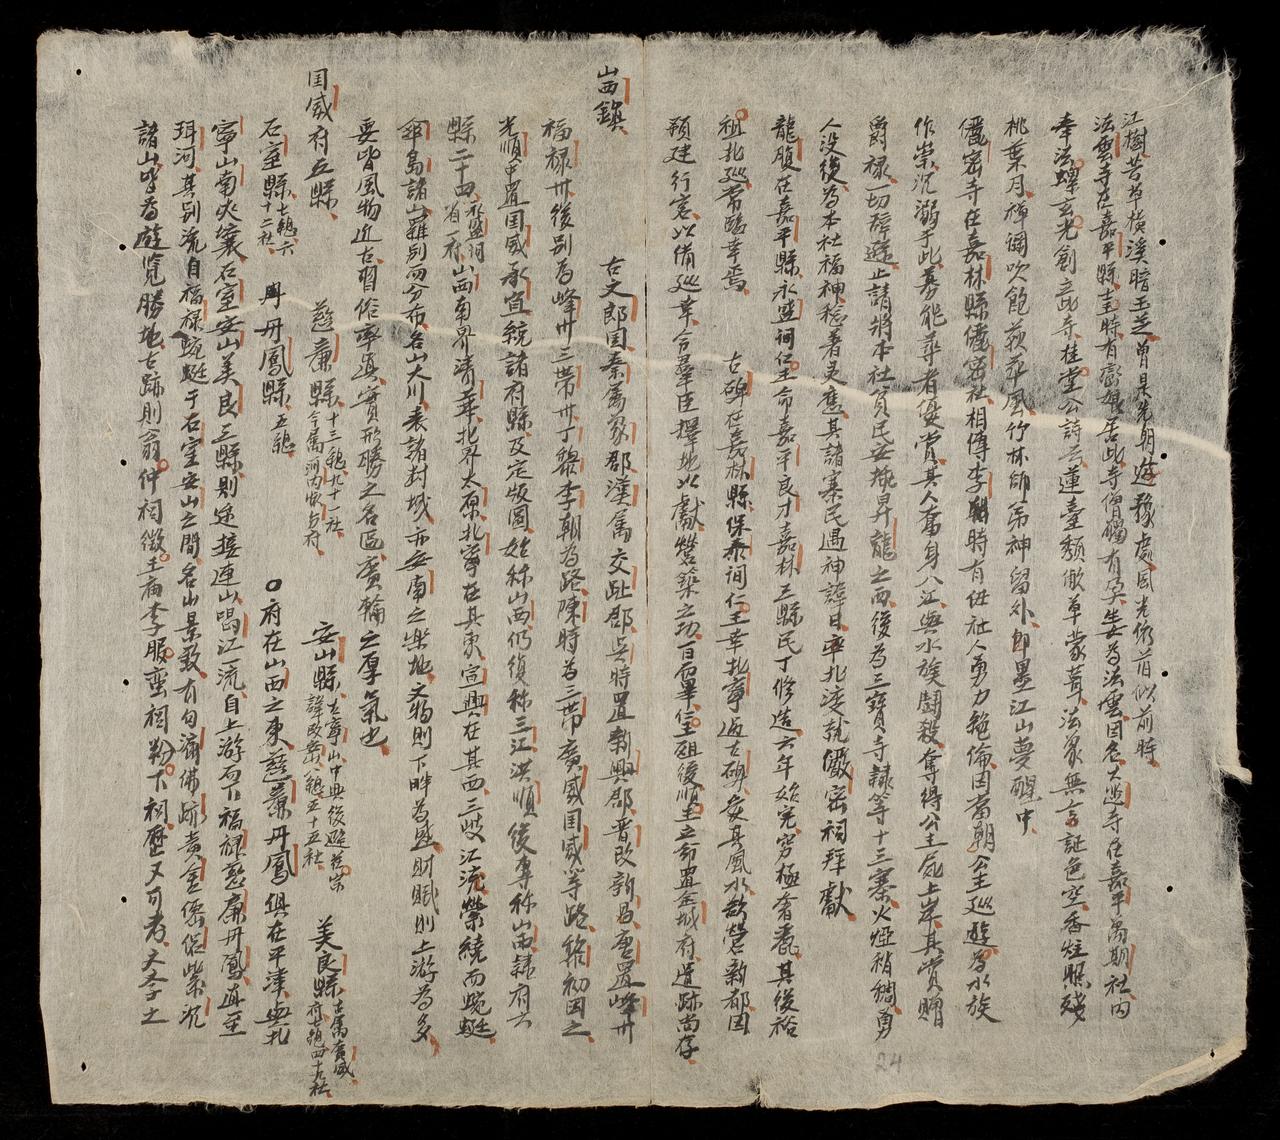 江樹苦草橫溪暗玉芝曽是先朝遊豫處風光依旧似前時
法雲寺在嘉平縣主時有彭娘居此寺僧觸有孕妾為法雲因名大𨓏寺在嘉平萬期社内
奉法螺玄光創立此寺桂堂公詩云蓮臺頽傲草蒙茸法象無言証色空香炷照殘
桃葉月樟調吹飽荻芦風竹林師吊神留外即墨江山夢醒中
儼密寺在嘉林縣儼密社相傳李朝時有伊社人勇力絶倫因當朝公主廵遊為水族
作祟沉溺于此募能葬者優賞其人奮身入江與水族鬪殺奪得公主死上岸其賞賜
爵禄一切辞避止請將本社貧民安插昇龍之西後為三寶寺隷等十三寨火烟稍稠勇
人没後為本社福神稔著灵應其諸寨民遇神諱日率北渡就儼密祠拜獻
龍腹在嘉平縣永盛間仁王命嘉平良才嘉林三縣民丁修造六年始完穷極奢麗其後裕
祖北廵常臨幸焉 古碑在嘉林縣保泰间仁王幸北寧過古碑安其風水欲營新都因
預建行宮以備廵幸今羣臣擇地以獻營築之功百畢崔殂後順主立命置金城府遺跡尚存
山西鎮 古文郎国秦属象郡漢属交趾郡吳時置新興郡晋改新昌唐置峰州
福禄州後别為峰州三帶州丁黎李朝為路陳時為三帶廣威国威等路黎初因之
光順中置国威承宣統諸府縣及定版圖始称山西仍復称三江洪順後專称山西隷府六
縣二十四永盛间省一府山西南界清華北界太原北寧在其東宣興在其西三岐江流縈繞而蜿蜒
傘島諸山羅列而分布名山大川表諸封域亦安南之楽地文物則下畔為盛財賦則上游為多
要皆風物近古習俗率真實形勝之名區廣輪之厚氣也
国威府五縣
石室縣七總六十二社 丹鳳縣五總 慈廉縣十三總九十一社今属河内怀德府 安山縣古寧山中興後避荘宗諱改安總五十五社 美良縣古属廣威府七總四十九社
府在山西之東慈廉丹鳳俱在平津與北
寧山南火壤石室安山美良三縣則途接連山喝江一流自上游而下福禄慈廉丹鳳直至
珥河其别流自福禄蜿蜒于石室安山之間名山景致有句漏佛跡黃金僊侣紫沉
諸山皆為遊覧勝地古跡則翁仲祠徵王庙李服蛮祠粉下祠歷又可考文李士